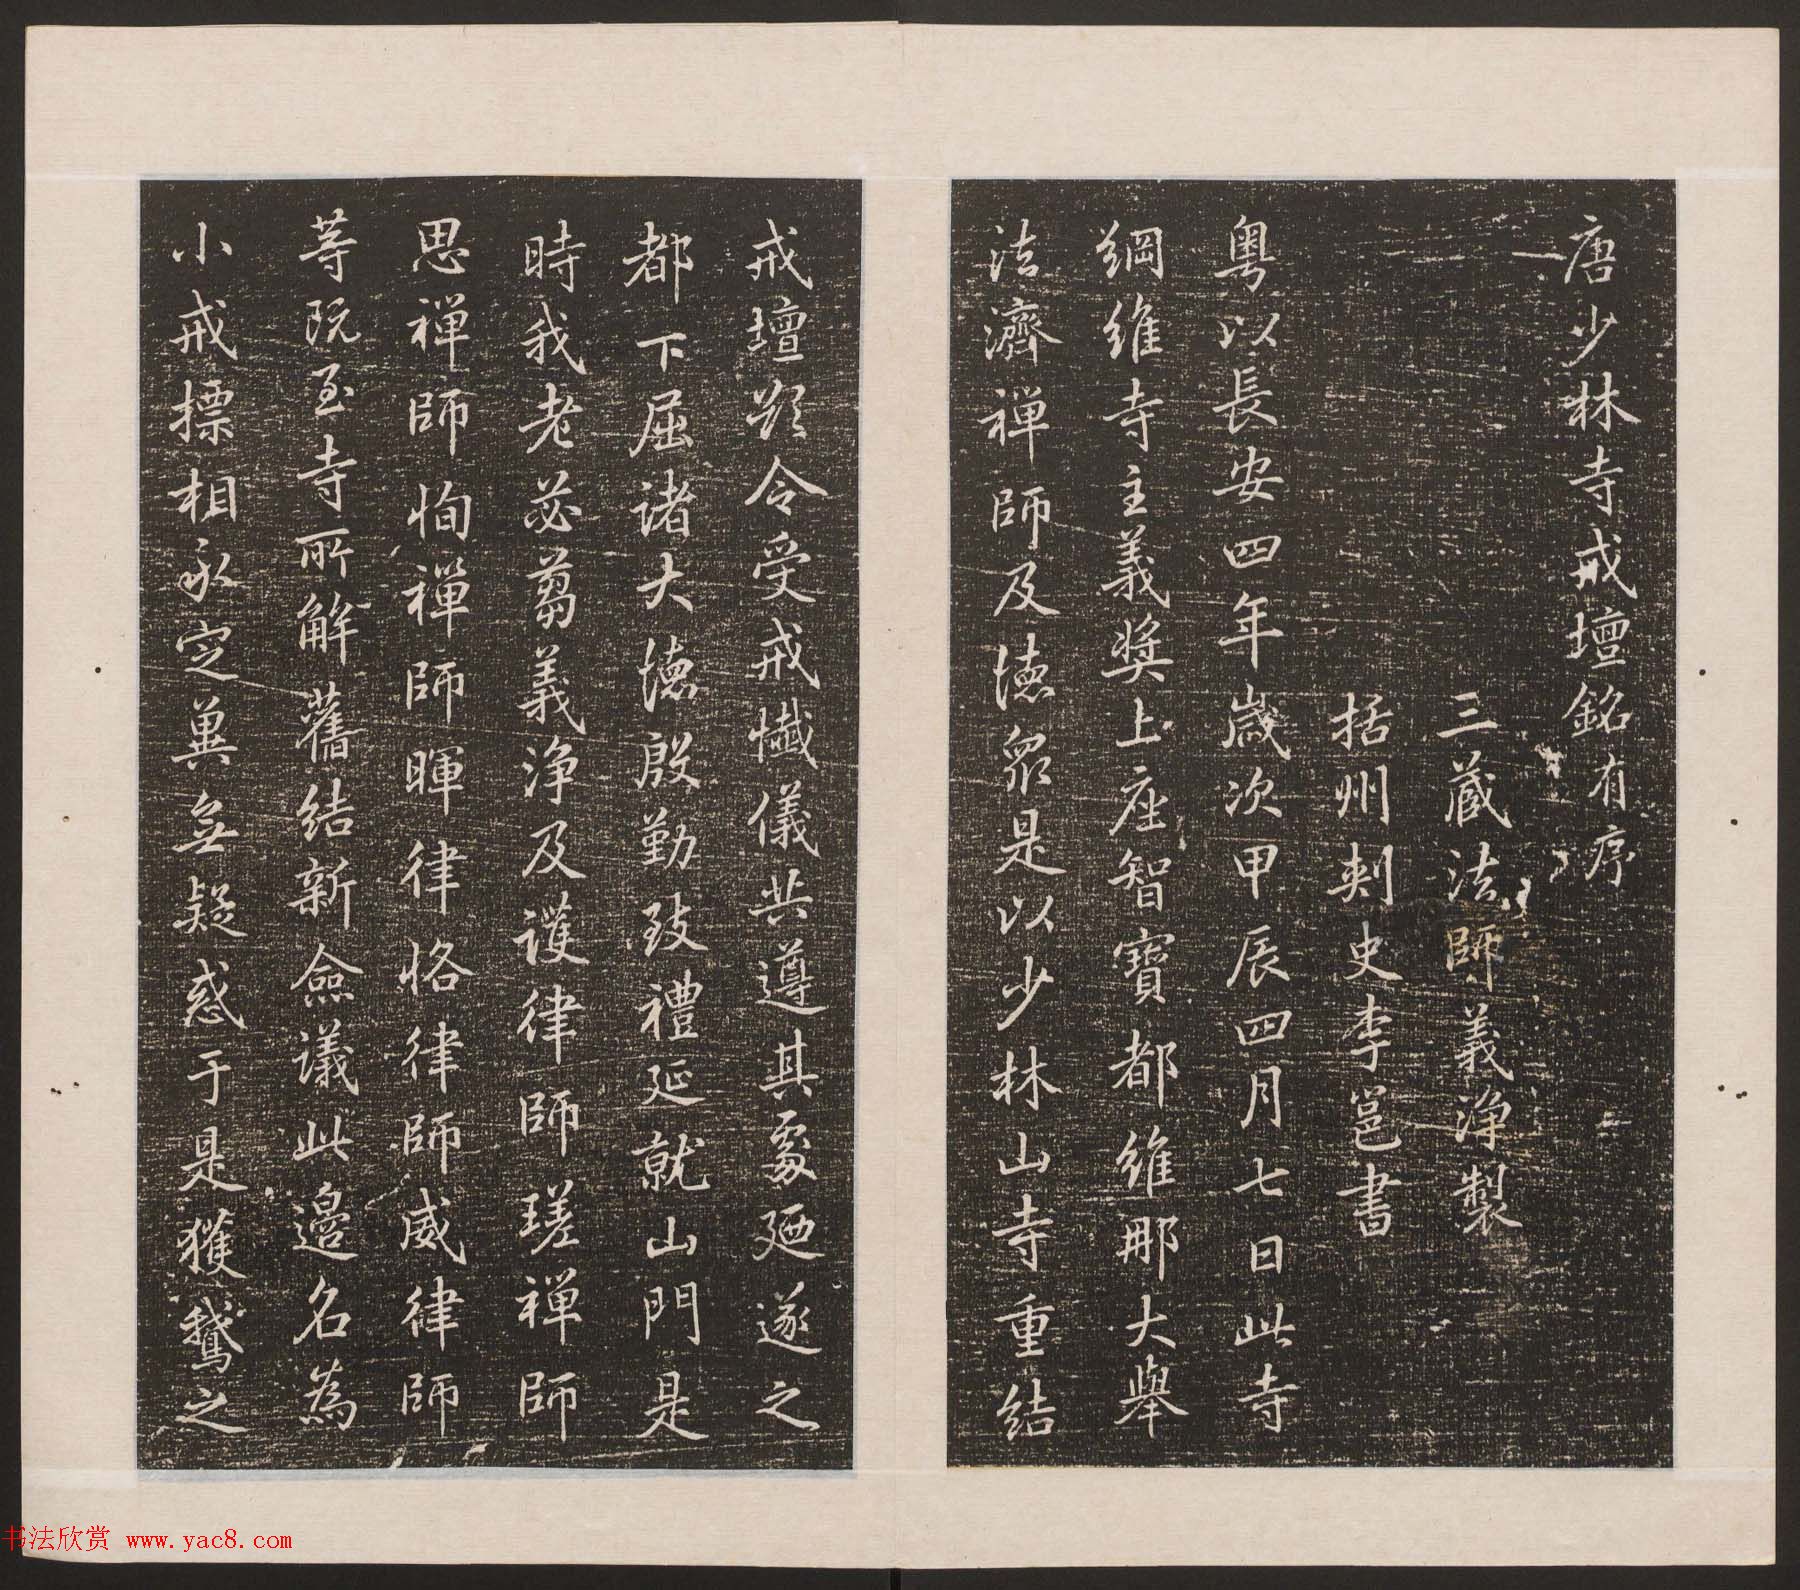 唐少林寺戒壇銘有序
三藏法師義淨製
括州刺史李邕書
粵以長安四年歲次甲辰四月七日此寺
綱維寺主義獎上座智寶都維那大舉
法濟禪師及德眾是以少林山寺重結
戒壇欲令受戒懺儀共遵其處廼遂之
都下屈諸大德殷勤致禮延就山門是
時我老苾蒭義淨及護律師瑳禪師
思禪師恂禪師暉律師恪律師威律師
等既至寺所解舊結新僉議此邊名為
小戒標相永定冀無疑惑于是獲鵞之
书法欣赏 www.yac8.com